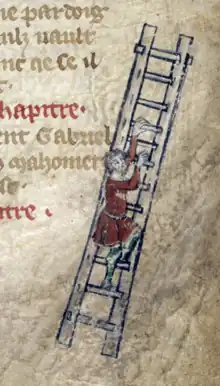 ne pardoig
ault
ne ce il
chapitre.
ent Gabriel
mahomet
se.
tre.